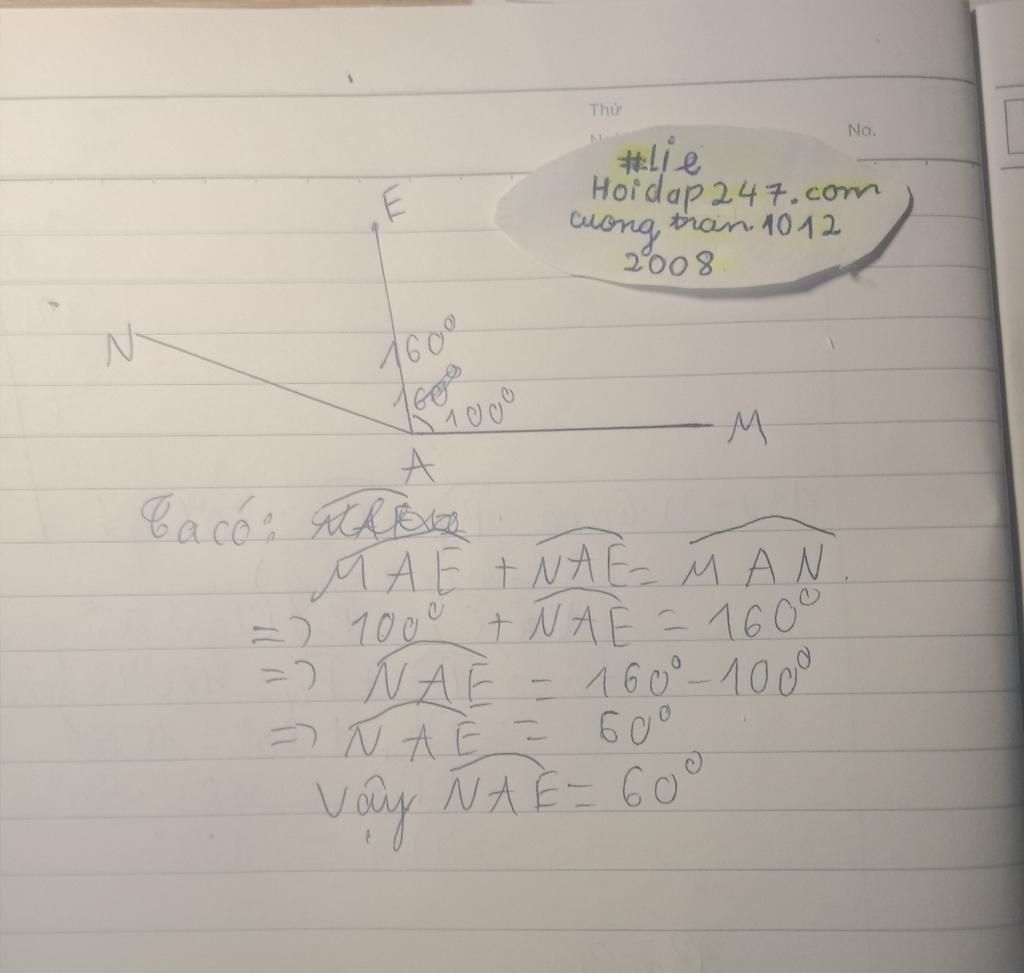 Thứ
No.
#lie
Hoidap247.com
cuong tran.1012
2008
E
N
160°
160°
100°
M
A
Ta có:
MAE + NAE = MAN.
=> 100° + NAE = 160°
=> NAE = 160° - 100°
=> NAE = 60°
Vậy NAE = 60°